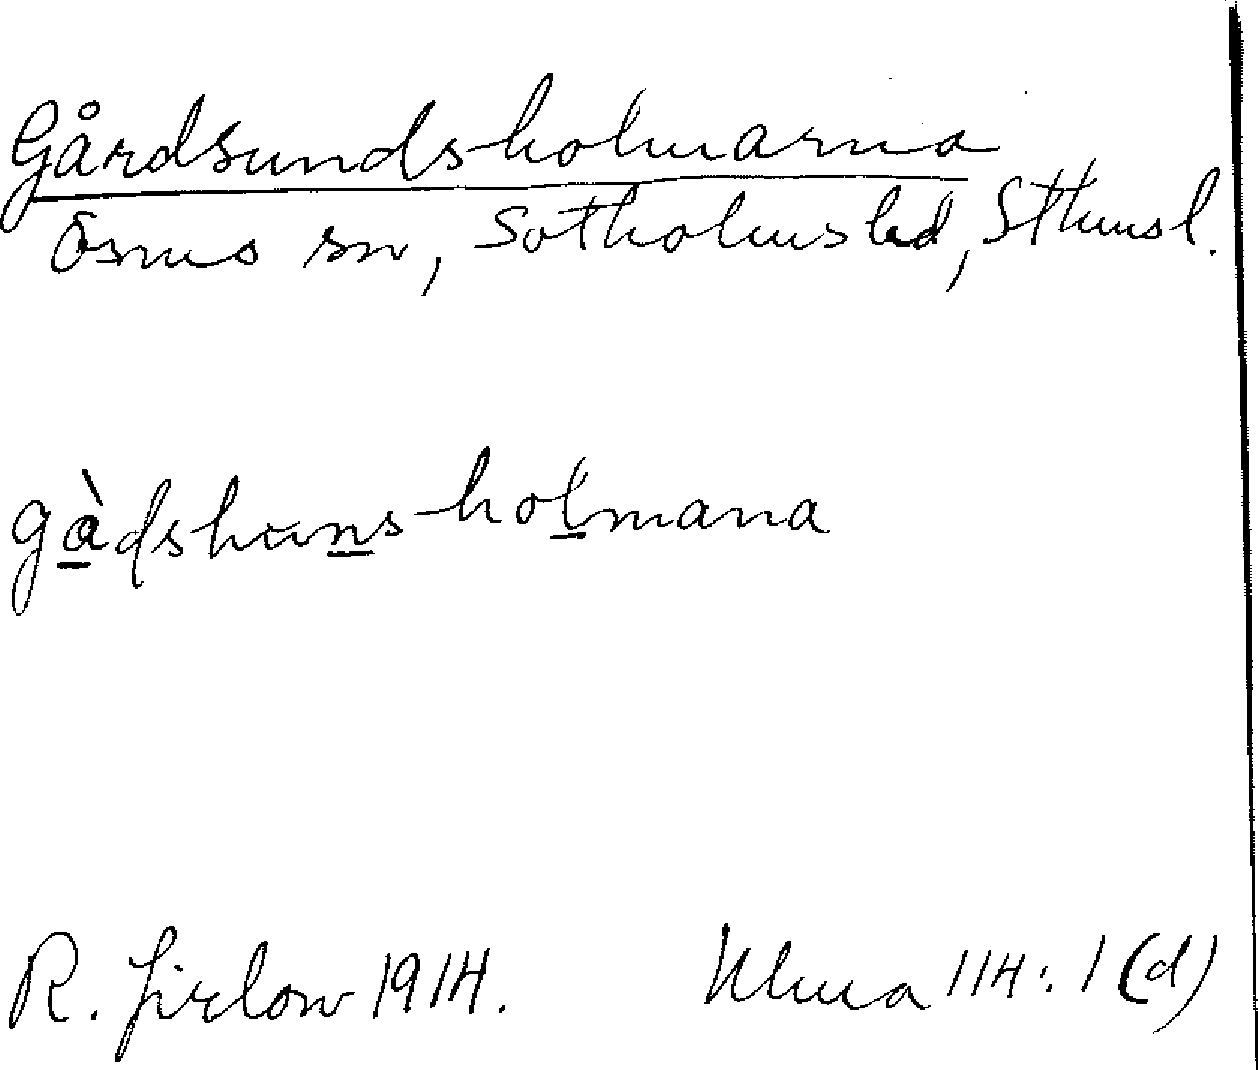 Gårdsundsholmarna
Ösmo sn, Sotholms hd, Sthmsl.
gàdshuns-holmana
R. Jirlow 1914. Ulma 114:1(d)